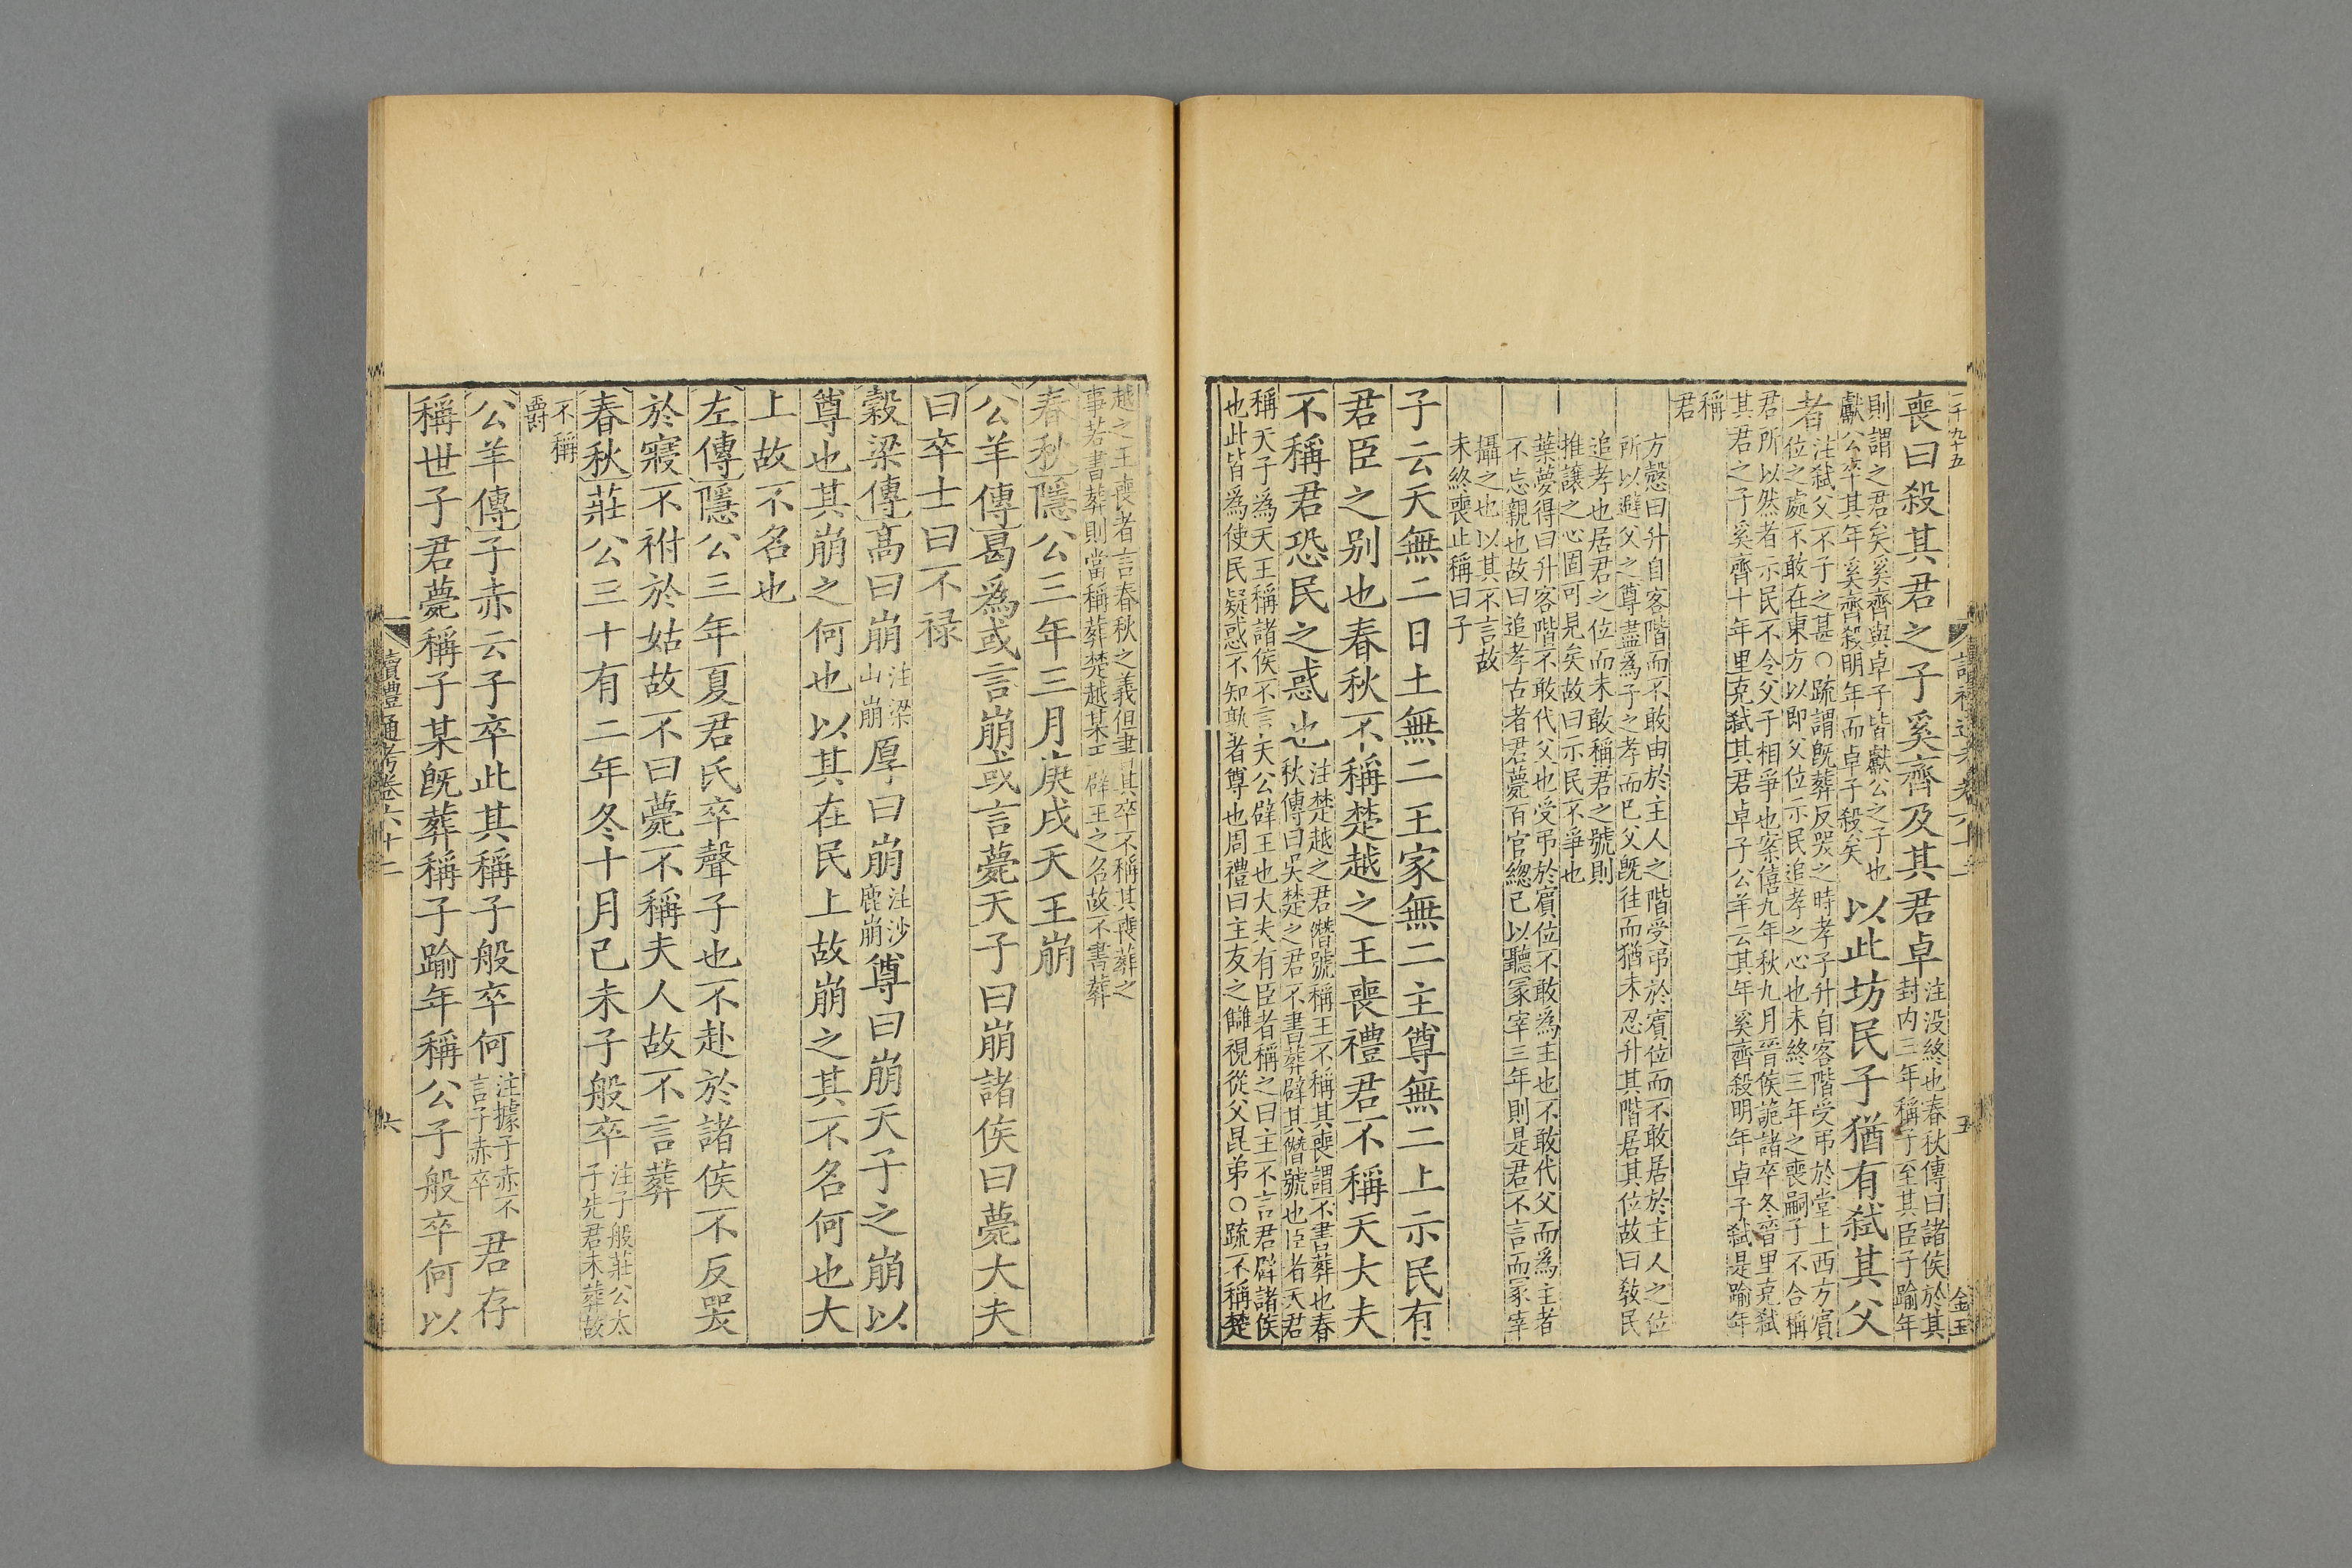 二千九十五
喪曰殺其君之子奚齊及其君卓注没終也春秋傳曰諸侯於其
封内三年稱子至其臣子踰年
則謂之君矣奚齊與卓子皆獻公之子也
獻公卒其年奚齊殺明年而卓子殺矣以此坊民子猶有弑其父
者注弑父不子之甚○疏謂既葬反哭之時孝子升自客階受弔於堂上西方賓
位之處不敢在東方以即父位示民追孝之心也未終三年之喪嗣子不合稱
君所以然者示民不令父子相爭也案僖九年秋九月晉侯詭諸卒冬晉里克弑
其君之子奚齊十年里克弑其君卓子公羊云其年奚齊殺明年卓子弑是踰年
稱
君
方慤曰升自客階而不敢由於主人之階受弔於賓位而不敢居於主人之位
所以避父之尊盡為子之孝而已父既往而猶未忍升其階居其位故曰教民
追孝也居君之位而未敢稱君之號則
推讓之心固可見矣故曰示民不爭也
葉夢得曰升客階不敢代父也受弔於賓位不敢為主也不敢代父而為主者
不忘親也故曰追孝古者君薨百官總己以聽冢宰三年則是君不言而冢宰
攝之也以其不言故
未終喪止稱曰子
子云天無二日土無二王家無二主尊無二上示民有
君臣之别也春秋不稱楚越之王喪禮君不稱天大夫
不稱君恐民之惑也注楚越之君僭號稱王不稱其喪謂不書葬也春
秋傳曰吳楚之君不書葬辟其僭號也臣者天君
稱天子為天王稱諸侯不言天公辟王也大夫有臣者稱之曰主不言君辟諸侯
也此皆為使民疑惑不知孰者尊也周禮曰主友之讎視從父昆弟○疏不稱楚
越之王喪者言春秋之義但書其卒不稱其喪葬之
事若書葬則當稱葬楚越某王辟王之名故不書葬
春秋隱公三年三月庚戌天王崩
公羊傳曷爲或言崩或言薨天子曰崩諸侯曰薨大夫
曰卒士曰不禄
穀梁傳高曰崩注梁
山崩厚曰崩注沙
鹿崩尊曰崩天子之崩以
尊也其崩之何也以其在民上故崩之其不名何也大
上故不名也
左傳隱公三年夏君氏卒聲子也不赴於諸侯不反哭
於寢不祔於姑故不曰薨不稱夫人故不言葬
春秋莊公三十有二年冬十月己未子般卒注子般莊公太
子先君未葬故
不稱
爵
公羊傳子赤云子卒此其稱子般卒何注據子赤不
言子赤卒君存
稱世子君薨稱子某既葬稱子踰年稱公子般卒何以
讀禮通考卷六十二
六
五
金玉